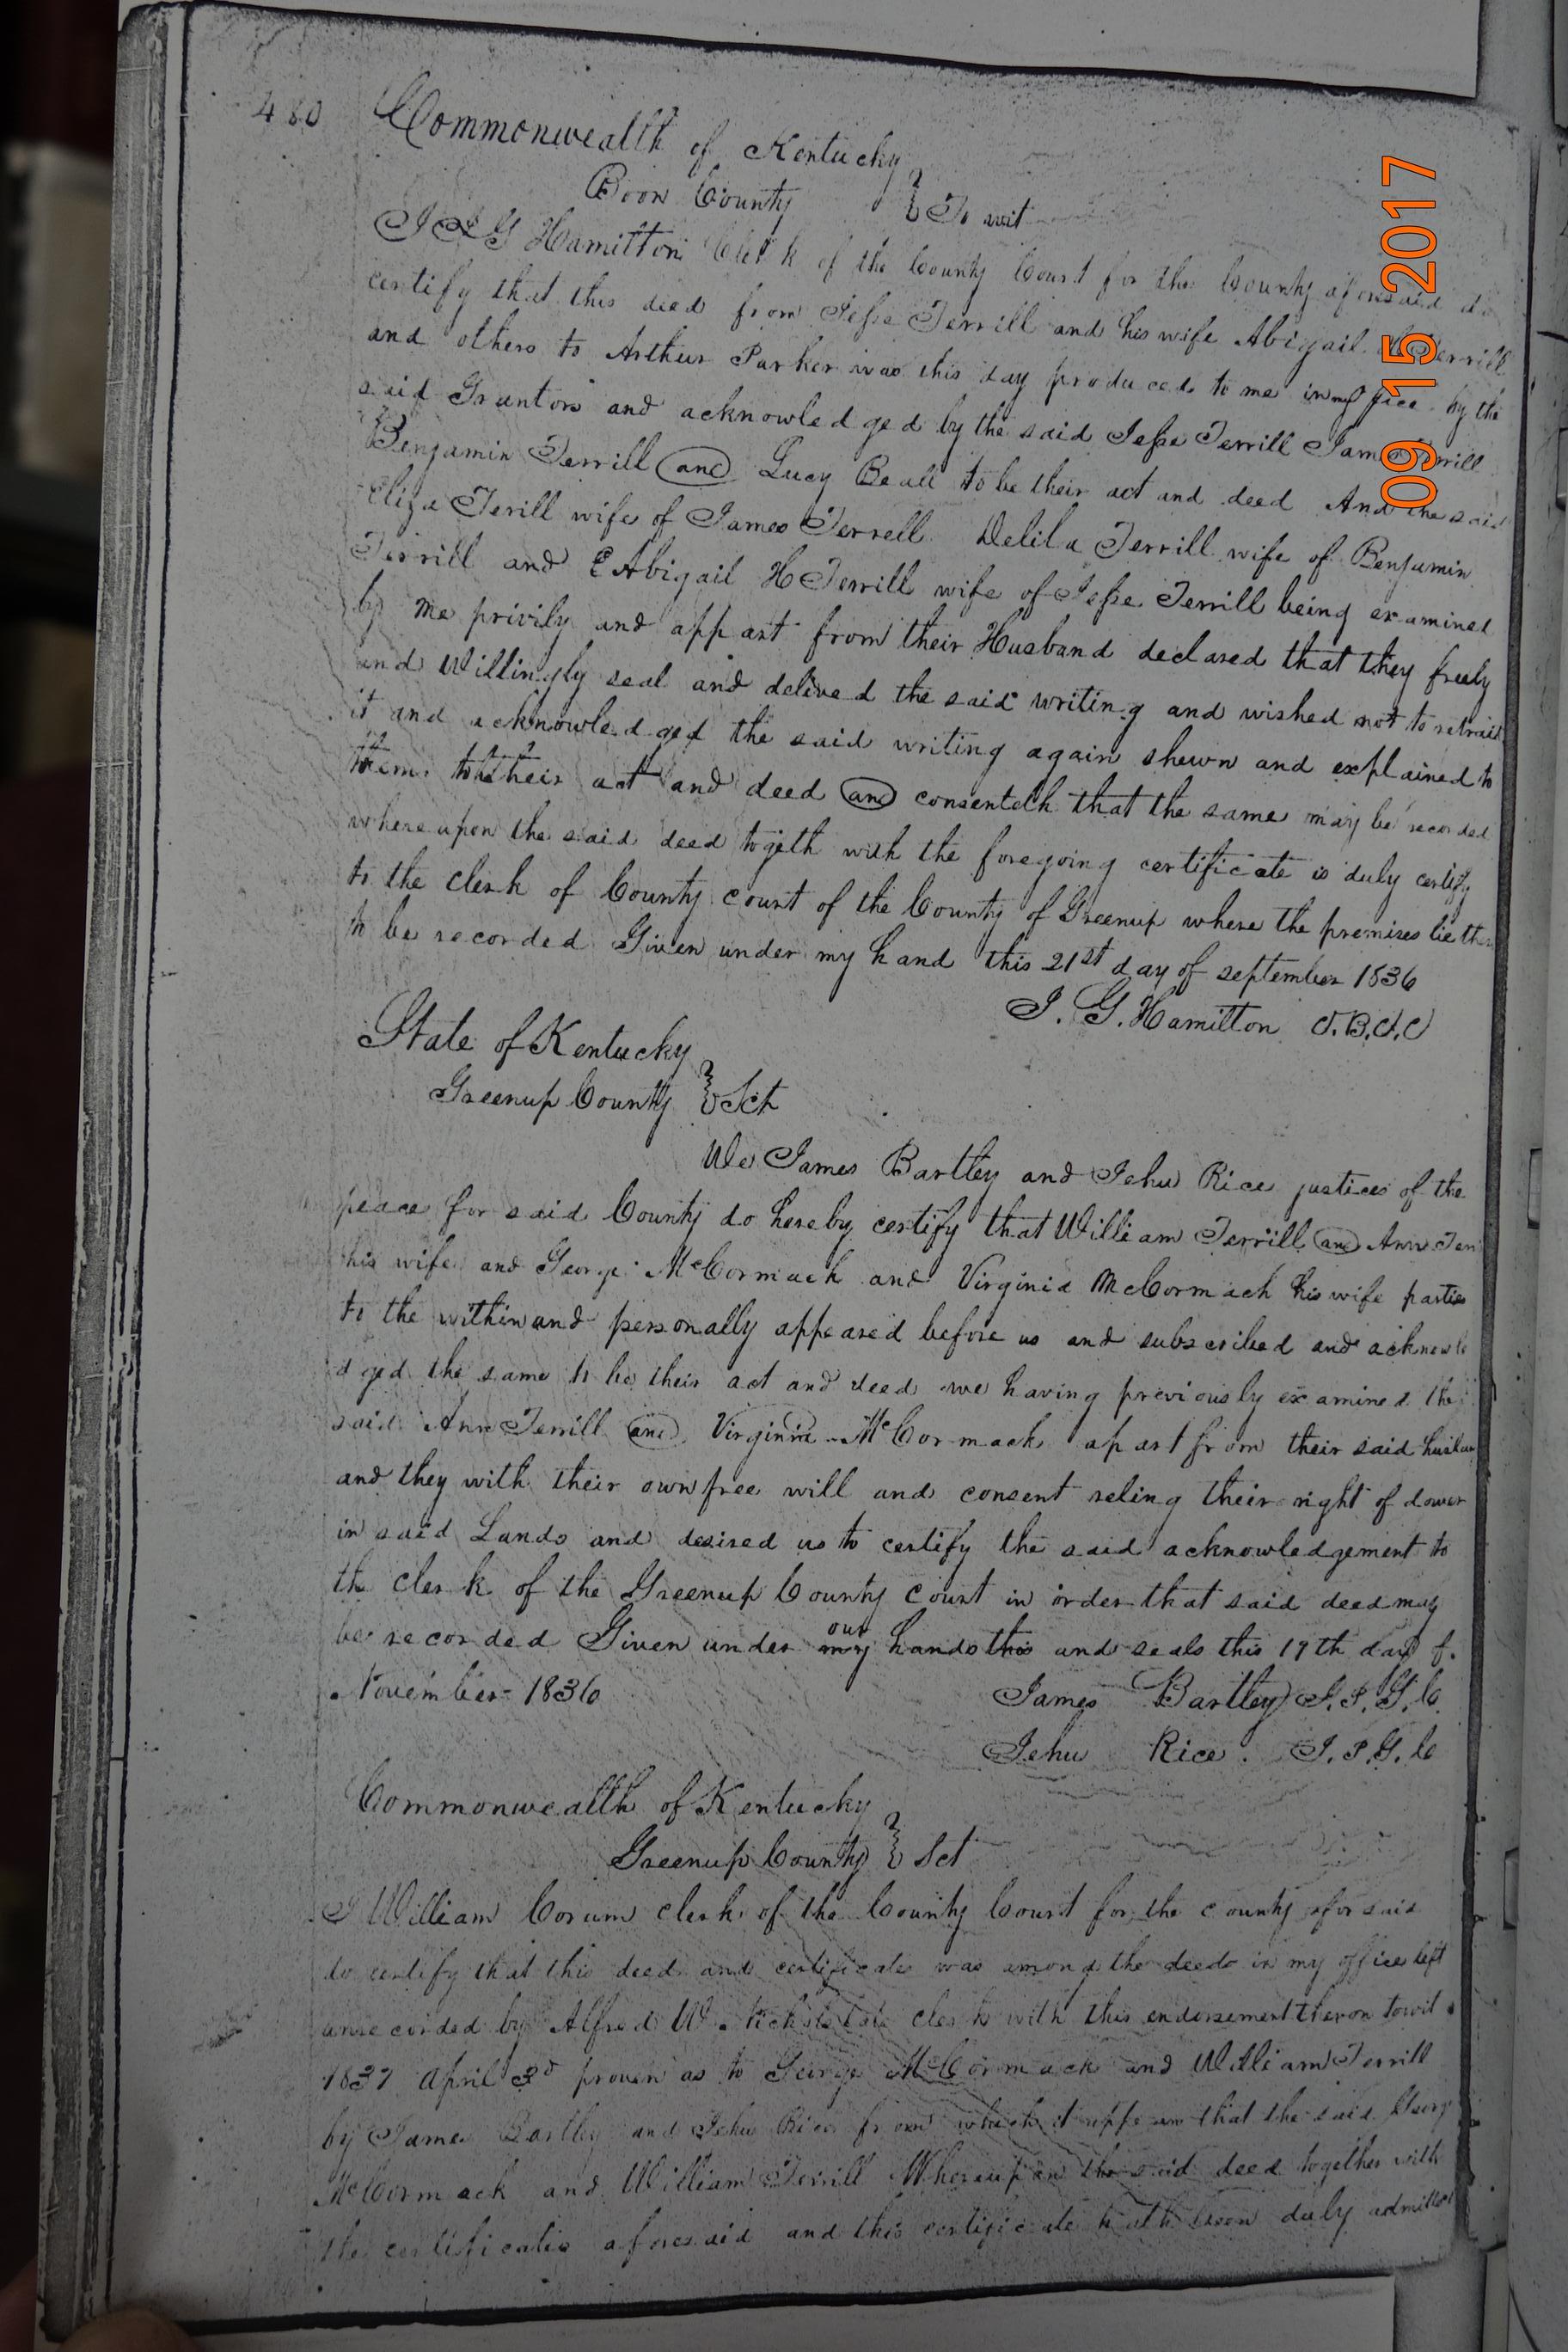 480
Commonwealth of Kentucky
Boon County } To wit
I J G Hamilton Clerk of the County Court for the County aforesaid do
certify that this deed from Jesse Terrill and his wife Abigail H Terrill
and others to Arthur Parker was this day produced to me in my office by the
said Grantors and acknowledged by the said Jesse Terrill James Terrill
Benjamin Terrill and Lucy Beall to be their act and deed And the said
Eliza Terill wife of James Terrell Delila Terrill wife of Benjamin
Terrill and Abigail H Terrill wife of Jesse Terrill being examined
by me privily and appart from their Husband declared that they freely
and Willingly seal and delived the said writing and wished not to retract
it and acknowledged the said writing again shewn and explained to
them to their act and deed and consenteth that the same may be recorded
whereupon the said deed togeth with the foregoing certificate is duly certify
to the clerk of County court of the County of Greenup where the premises lie
to be recorded Given under my hand this 21st day of september 1836
J. G. Hamilton C.B.C.C
State of Kentucky
Greenup County } Sct
We James Bartley and Jehu Rice justices of the
peace for said County do hereby certify that William Terrill and Ann Terr
his wife and George McCormack and Virginia McCormack his wife parties
to the within and personally appeared before us and subscribed and acknowle
dged the same to be their act and deed we having previously examined the
said Ann Terrill and Virginia McCormack apart from their said husban
and they with their own free will and consent reling their right of dower
in said Lands and desired us to certify the said acknowledgement to
th clerk of the Greenup County Court in order that said deed may
be recorded Given under my our hands this and seals this 19th day of
November 1836
James Bartley J.P.G.C.
Jehu Rice. J.P.G.C
Commonwealth of Kentucky
Greenup County } Sct
I William Corum clerk of the County Court for the county aforsaid
do certify that this deed and certificate was among the deeds in my office left
unrecorded by Alfred W. clerk with this endorsement theron towit
1837 April 3d proven as to George McCormack and William Terrill
by James Bartley and Jehu Rice from which it appears that the said Georg
McCormack and William Terrill Whereupon the said deed together with
the certificates aforesaid and this certificate hath been duly admitted
09 15 2017